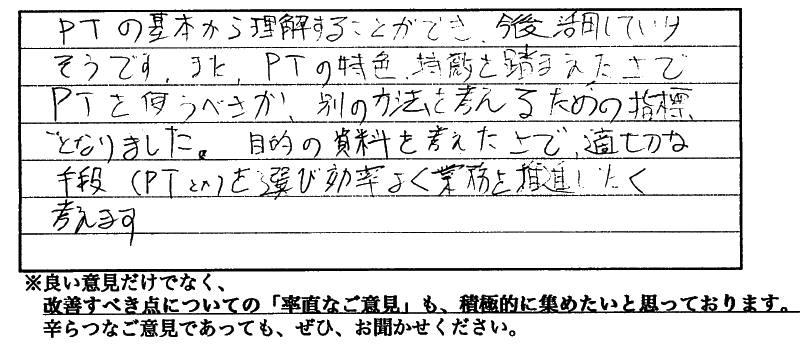 PTの基本から理解することができ、今後活用していけ
そうです。また、PTの特色、特徴を踏まえた上で
PTを使うべきか、別の方法を考えるための指標
となりました。目的の資料を考えた上で、適切な
手段(PTとか)を選び効率よく業務を推進したく
考えます
※良い意見だけでなく、
改善すべき点についての「率直なご意見」も、積極的に集めたいと思っております。
辛らつなご意見であっても、ぜひ、お聞かせください。